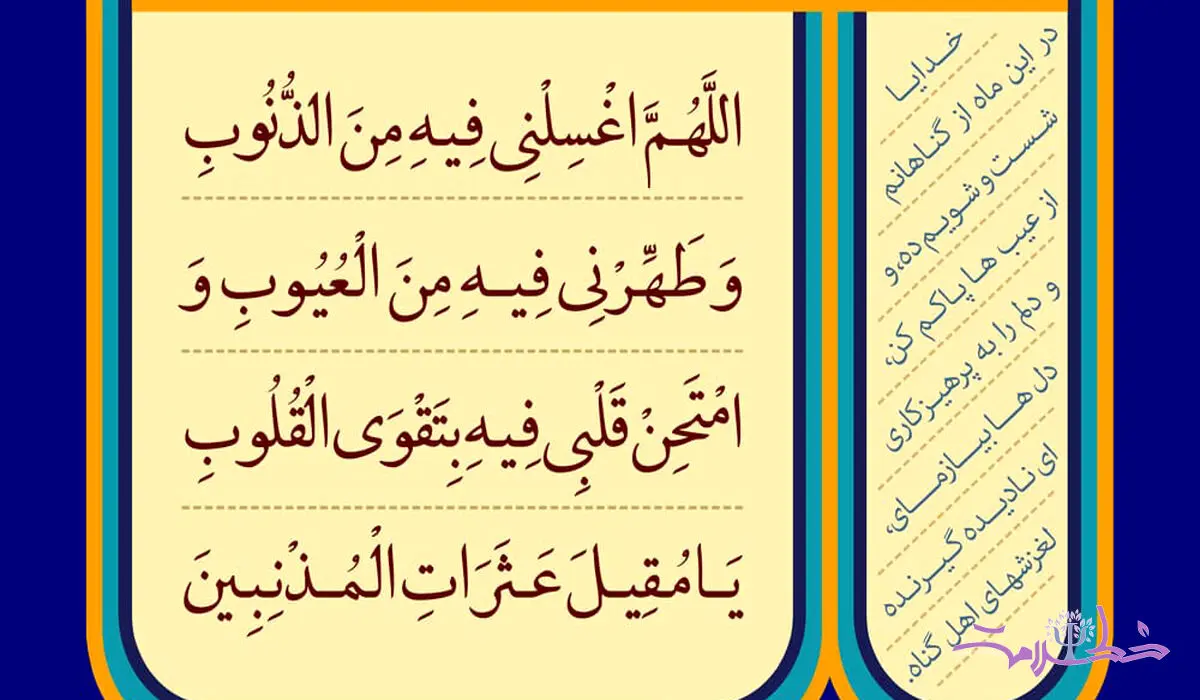 اللَّهُمَّ اغْسِلْنِی فِیهِ مِنَ الذُّنُوبِ
وَ طَهِّرْنِی فِیهِ مِنَ الْعُیُوبِ وَ
امْتَحِنْ قَلْبِی فِیهِ بِتَقْوَى الْقُلُوبِ
یَا مُقِیلَ عَثَرَاتِ الْمُذْنِبِینَ
خدایا
در این ماه از گناهانم
شست و شویم ده، و
از عیب ها پاکم کن،
و دلم را به پرهیزکاری
دل ها بیازمای،
ای نادیده گیرنده
لغزشهای اهل گناه.
خط سلامت